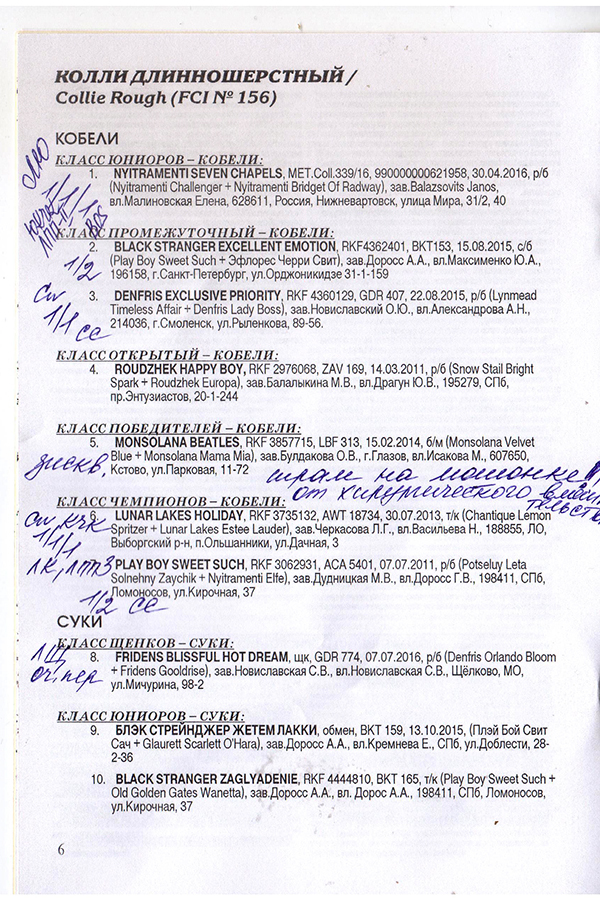 КОЛЛИ ДЛИННОШЕРСТНЫЙ /
Collie Rough (FCI № 156)
КОБЕЛИ
КЛАСС ЮНИОРОВ – КОБЕЛИ:
1. NYITRAMENTI SEVEN CHAPELS, MET.Coll.339/16, 990000000621958, 30.04.2016, р/б
(Nyitramenti Challenger + Nyitramenti Bridget Of Radway), зав.Balazsovits Janos,
вл.Малиновская Елена, 628611, Россия, Нижневартовск, улица Мира, 31/2, 40
1/1/1
КЛАСС ПРОМЕЖУТОЧНЫЙ – КОБЕЛИ:
2. BLACK STRANGER EXCELLENT EMOTION, RKF4362401, BKT153, 15.08.2015, с/б
(Play Boy Sweet Such + Эфлорес Черри Свит), зав.Доросс А.А., вл.Максименко Ю.А.,
196158, г.Санкт-Петербург, ул.Орджоникидзе 31-1-159
1/2
3. DENFRIS EXCLUSIVE PRIORITY, RKF 4360129, GDR 407, 22.08.2015, р/б (Lynmead
Timeless Affair + Denfris Lady Boss), зав.Новиславский О.Ю., вл.Александрова А.Н.,
214036, г.Смоленск, ул.Рыленкова, 89-56.
1/1 CC
КЛАСС ОТКРЫТЫЙ – КОБЕЛИ:
4. ROUDZHEK HAPPY BOY, RKF 2976068, ZAV 169, 14.03.2011, р/б (Snow Stail Bright
Spark + Roudzhek Europa), зав.Балалыкина М.В., вл.Драгун Ю.В., 195279, СПб,
пр.Энтузиастов, 20-1-244
КЛАСС ПОБЕДИТЕЛЕЙ – КОБЕЛИ:
5. MONSOLANA BEATLES, RKF 3857715, LBF 313, 15.02.2014, б/м (Monsolana Velvet
Blue + Monsolana Mama Mia), зав.Булдакова О.В., г.Глазов, вл.Исакова М., 607650,
Кстово, ул.Парковая, 11-72
дискв. шрам на мошонке
от хирургического вмешательства
КЛАСС ЧЕМПИОНОВ – КОБЕЛИ:
6. LUNAR LAKES HOLIDAY, RKF 3735132, AWT 18734, 30.07.2013, т/к (Chantique Lemon
Spritzer + Lunar Lakes Estee Lauder), зав.Черкасова Л.Г., вл.Васильева Н., 188855, ЛО,
Выборгский р-н, п.Ольшанники, ул.Дачная, 3
1/1/1
ЛК, ЛПП3
PLAY BOY SWEET SUCH, RKF 3062931, ACA 5401, 07.07.2011, р/б (Potseluy Leta
Solnehny Zaychik + Nyitramenti Elfe), зав.Дудницкая М.В., вл.Доросс Г.В., 198411, СПб,
Ломоносов, ул.Кирочная, 37
1/2 CC
СУКИ
КЛАСС ЩЕНКОВ – СУКИ:
8. FRIDENS BLISSFUL HOT DREAM, щк, GDR 774, 07.07.2016, р/б (Denfris Orlando Bloom
+ Fridens Gooldrise), зав.Новиславская С.В., вл.Новиславская С.В., Щёлково, МО,
ул.Мичурина, 98-2
ЛЩ
оч.пер
КЛАСС ЮНИОРОВ – СУКИ:
9. БЛЭК СТРЕЙНДЖЕР ЖЕТЕМ ЛАККИ, обмен, BKT 159, 13.10.2015, (Плэй Бой Свит
Сач + Glaurett Scarlett O'Hara), зав.Доросс А.А., вл.Кремнева Е., СПб, ул.Доблести, 28-
2-36
10. BLACK STRANGER ZAGLYADENIE, RKF 4444810, BKT 165, т/к (Play Boy Sweet Such +
Old Golden Gates Wanetta), зав.Доросс А.А., вл. Дорос А.А., 198411, СПб, Ломоносов,
ул.Кирочная, 37
6